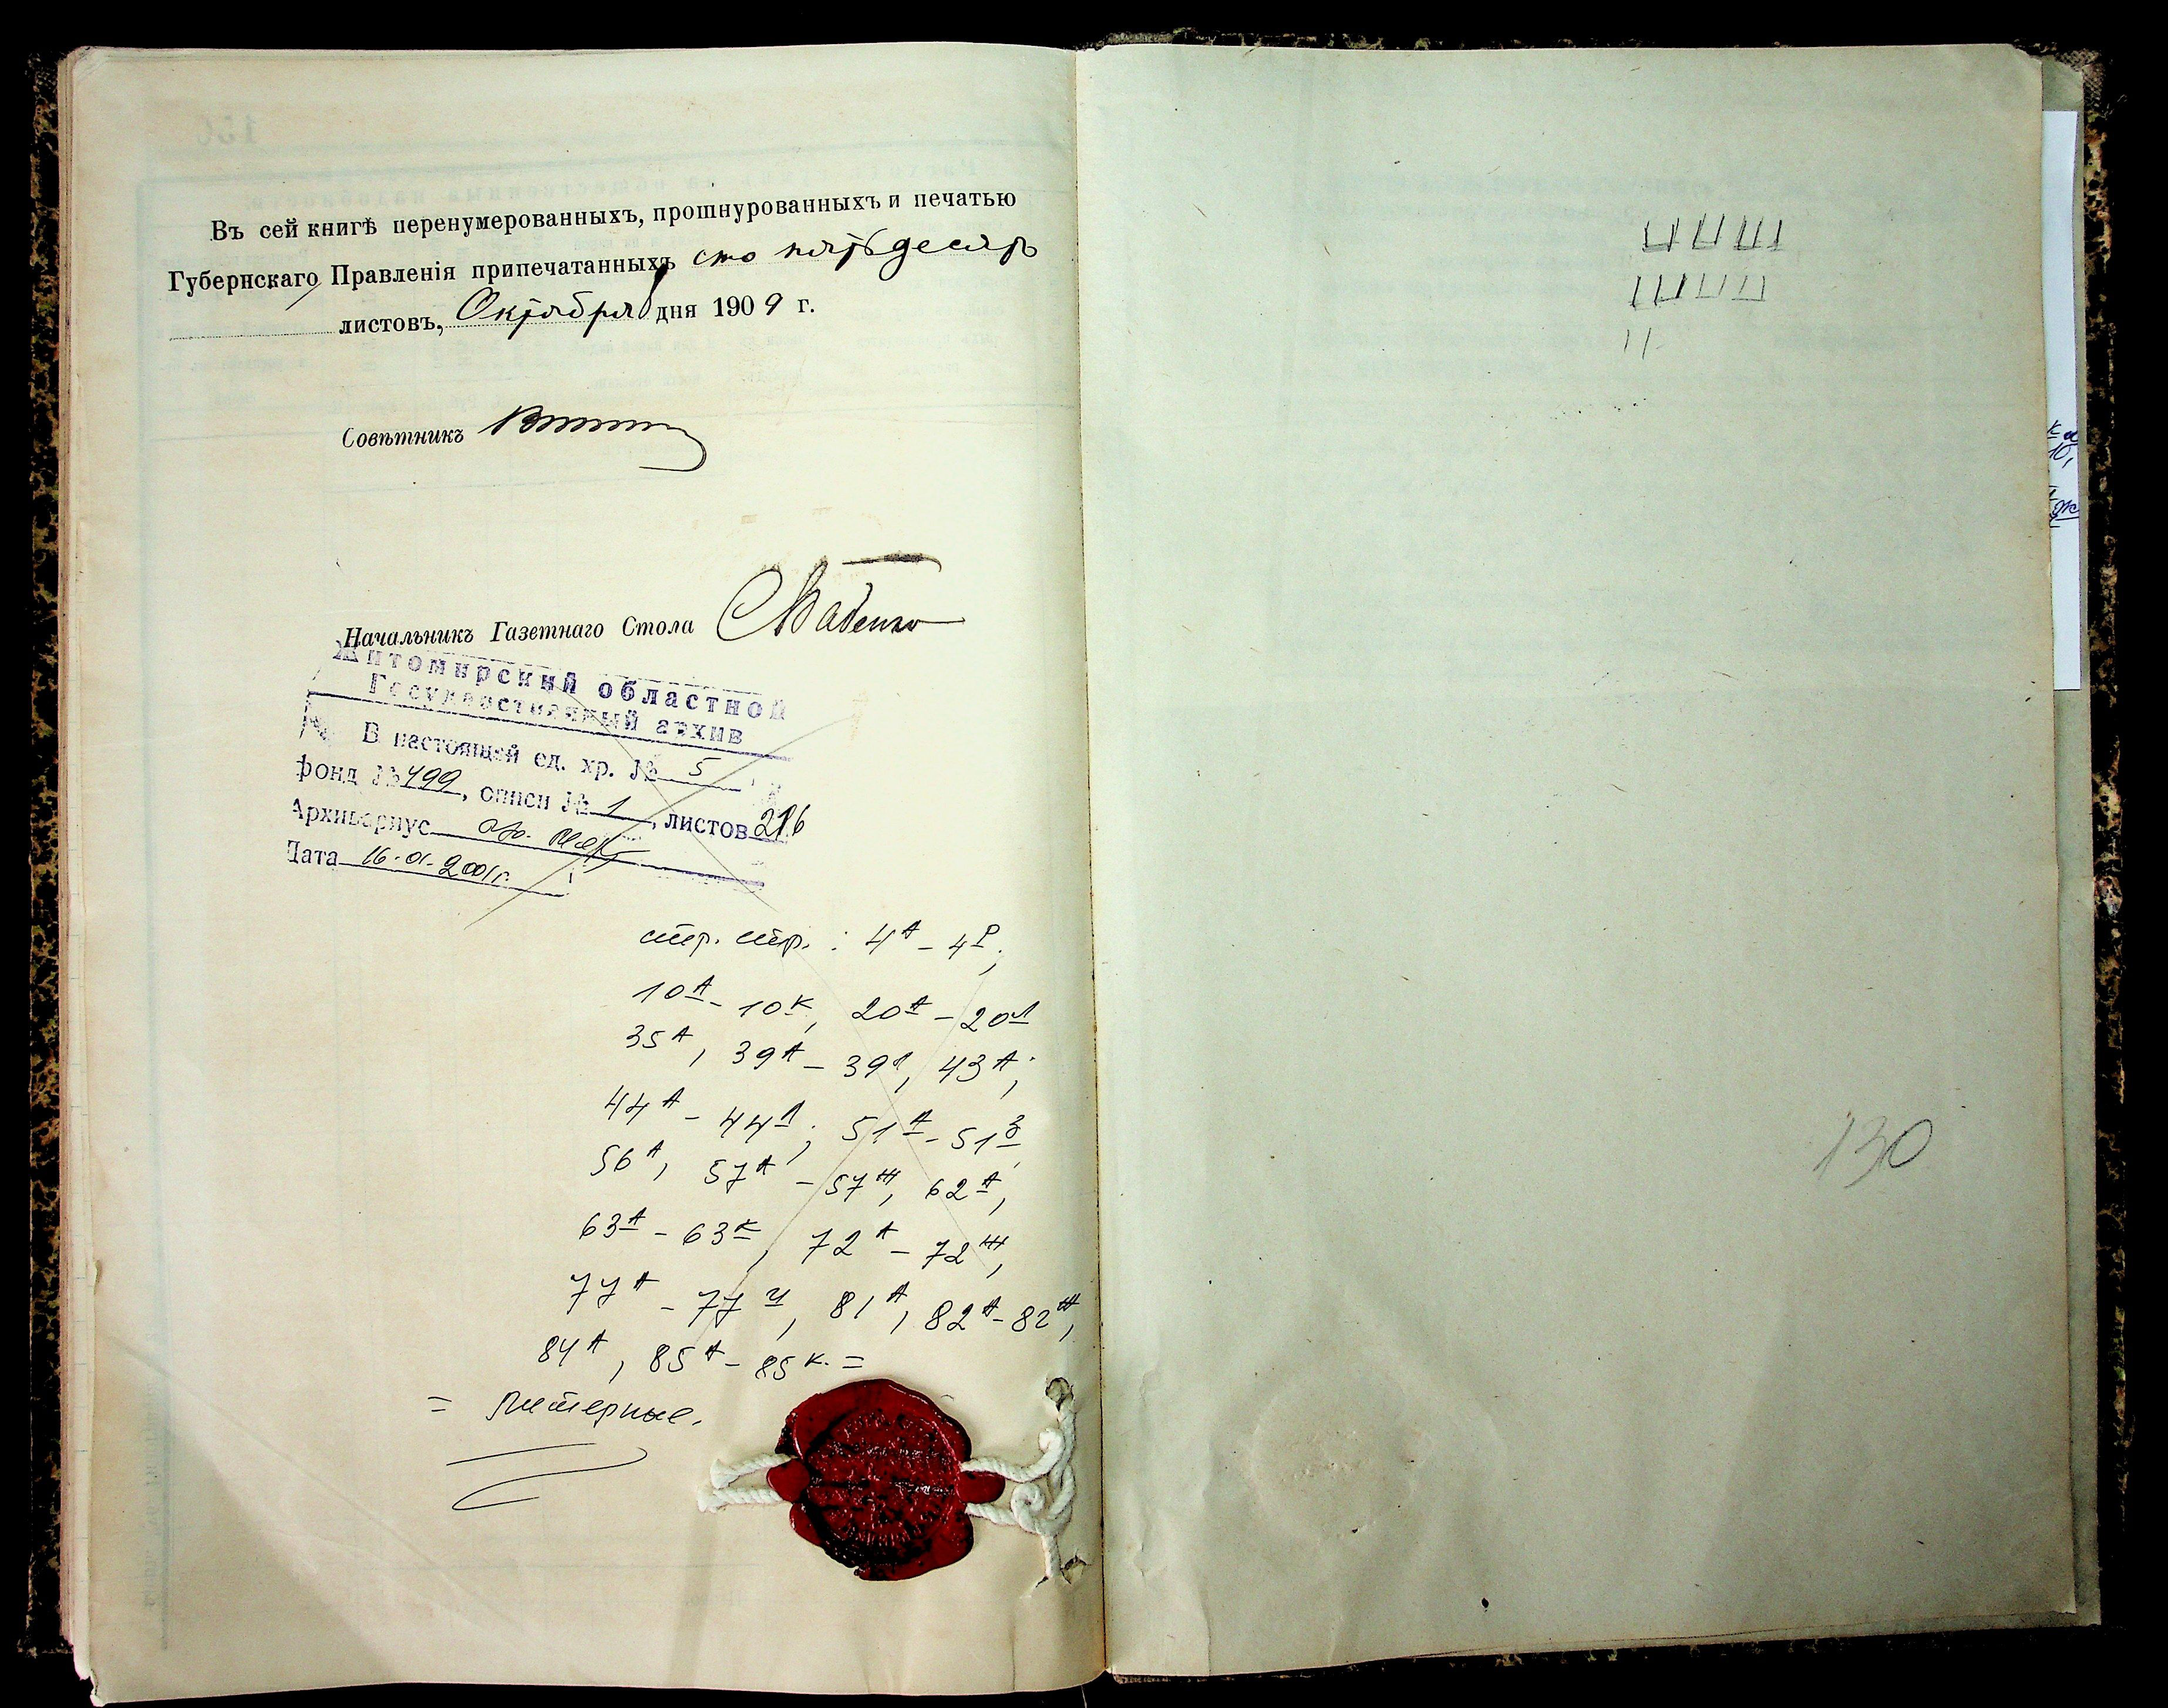 Въ сей книгѣ перенумерованныхъ, прошнурованныхъ и печатью
Губернскаго Правленія припечатанныхъ сто пятьдесятъ
листовъ, Октября дня 1909 г.
Совѣтникъ
Начальникъ Газетнаго Стола
Житомирский областной
Государственный архив
В настоящей ед. хр. № 5
фонд № 499, описи № 1, листов 216
Архивариус
Дата 16.01.2001г.
стр. стр. : 4А - 4Р;
10А - 10К, 20А - 20Л
35А, 39А - 39Л, 43А;
44А - 44Л; 51А - 51З
56А, 57А - 57Ж, 62А,
63А - 63К, 72А - 72Ж,
77А - 77И, 81А, 82А - 82Ж,
84А, 85А - 85К. =
= литерные.
130